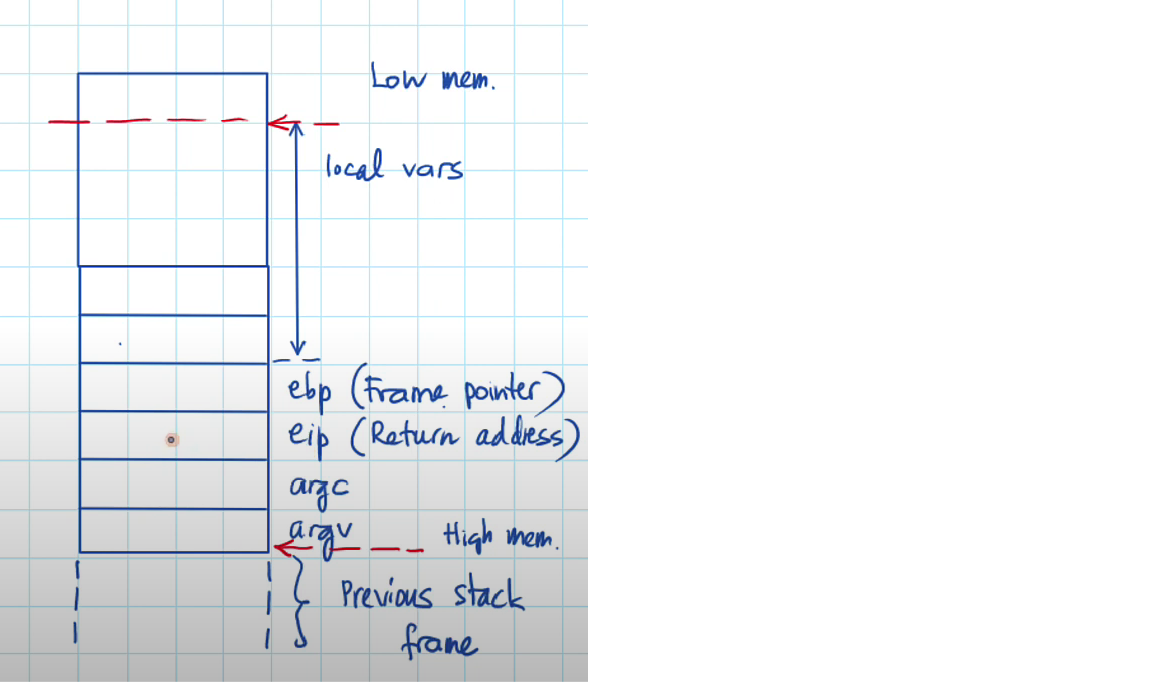 Low mem.
local vars
ebp (Frame pointer)
eip (Return address)
argc
argv
High mem.
Previous stack
frame